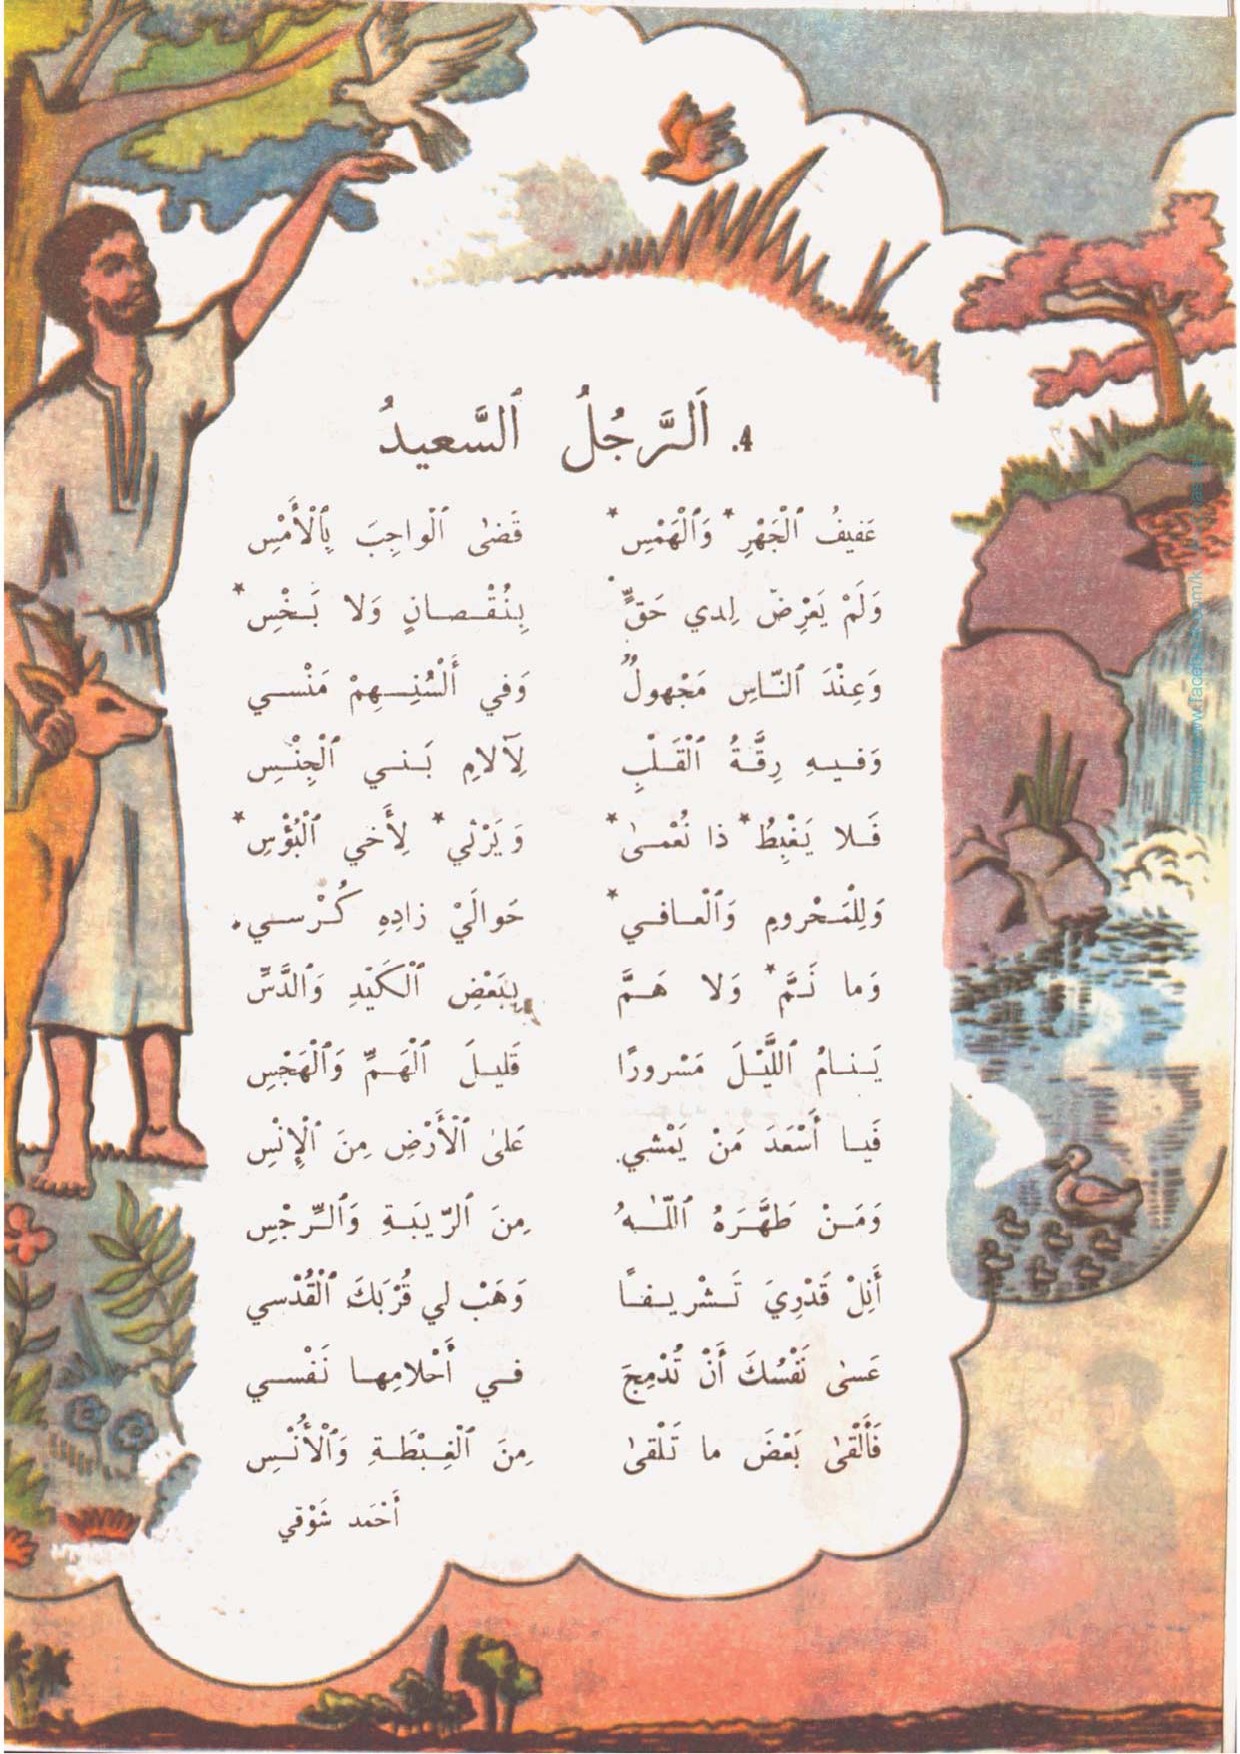 4. اَلرَّجُلُ ٱلسَّعيدُ
عَفيفُ ٱلْجَهْرِ * وَٱلْهَمْسِ * قَضىٰ ٱلْواجِبَ بِٱلْأَمْسِ
وَلَمْ يَعْرِضْ لِذي حَقٍّ * بِنُقْصانٍ وَلا بَخْسِ *
وَعِنْدَ ٱلنّاسِ مَجْهولٌ وَفي أَلْسُنِهِمْ مَنْسي
وَفيهِ رِقَّةُ ٱلْقَلْبِ لِآلامِ بَني ٱلْجِنْسِ
فَلا يَغْبِطُ * ذا نُعْمىٰ * وَيَرْثي * لِأَخي ٱلْبُؤْسِ *
وَلِلْمَحْرومِ وَٱلْعافي * حَوالَيْ زادِهِ كُرْسي.
وَما نَمَّ * وَلا هَمَّ بِبَعْضِ ٱلْكَيْدِ وَٱلدَّسِّ
يَنامُ ٱللَّيْلَ مَسْرورًا قَليلَ ٱلْهَمِّ وَٱلْهَجْسِ
فَيا أَسْعَدَ مَنْ يَمْشي عَلىٰ ٱلْأَرْضِ مِنَ ٱلْإِنْسِ
وَمَنْ طَهَّرَهُ ٱللّٰهُ مِنَ ٱلرّيبَةِ وَٱلرِّجْسِ
أَنِلْ قَدْرِيَ تَشْريفًا وَهَبْ لي قُرْبَكَ ٱلْقُدْسي
عَسىٰ نَفْسُكَ أَنْ تُدْمِجَ في أَحْلامِها نَفْسي
فَأَلْقىٰ بَعْضَ ما تَلْقىٰ مِنَ ٱلْغِبْطَةِ وَٱلْأُنْسِ
أَحْمَد شَوْقي